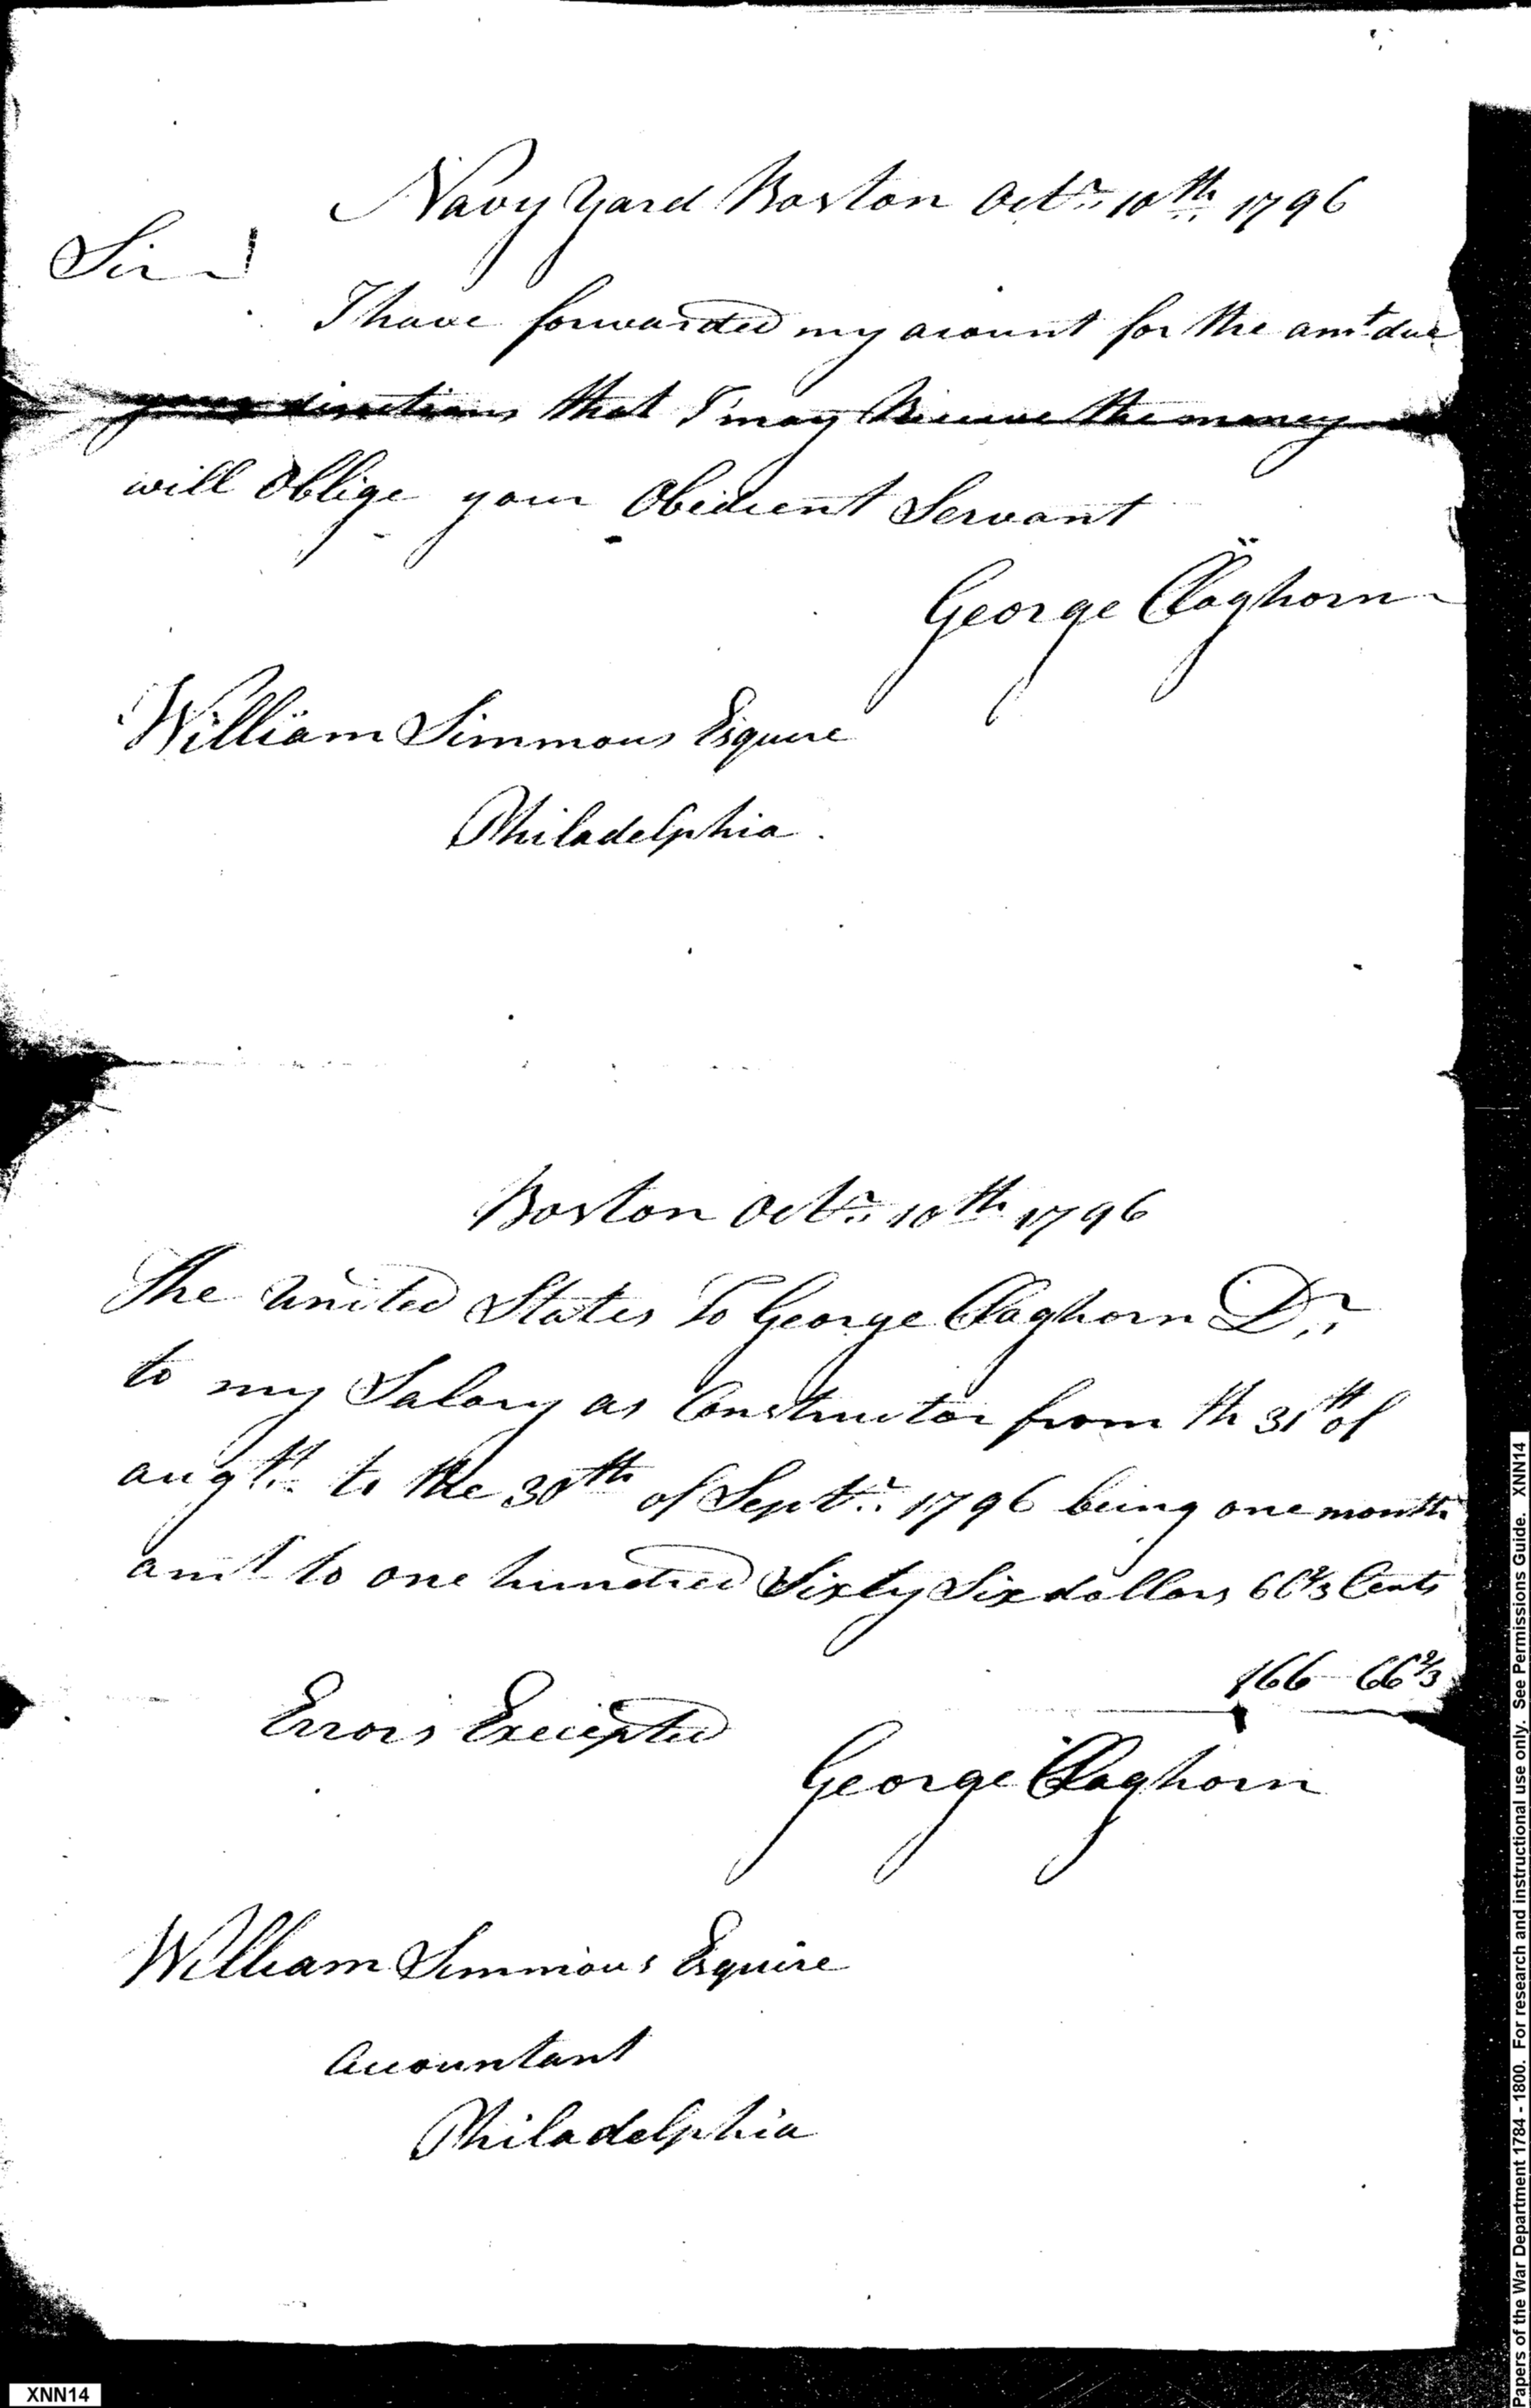 Navy Yard Boston Octr 10th 1796
Sir
I have forwarded my acount for the amt due
your directions that I may Receive the money
will Oblige your Obedient Servant
George Claghorn
William Simmons Esquire
Philadelphia.
Boston Octr 10th 1796
The United States To George Claghorn Dr
to my Salary as Constructor from th 31th of
augtt to the 30th of Septr 1796 being one month
amt to one hundred Sixty Six dollars 66 2/3 Cents
166 66 2/3
Errors Excepted
George Claghorn
William Simmons Esquire
Accountant
Philadelphia
XNN14
Papers of the War Department 1784 - 1800. For research and instructional use only. See Permissions Guide. XNN14